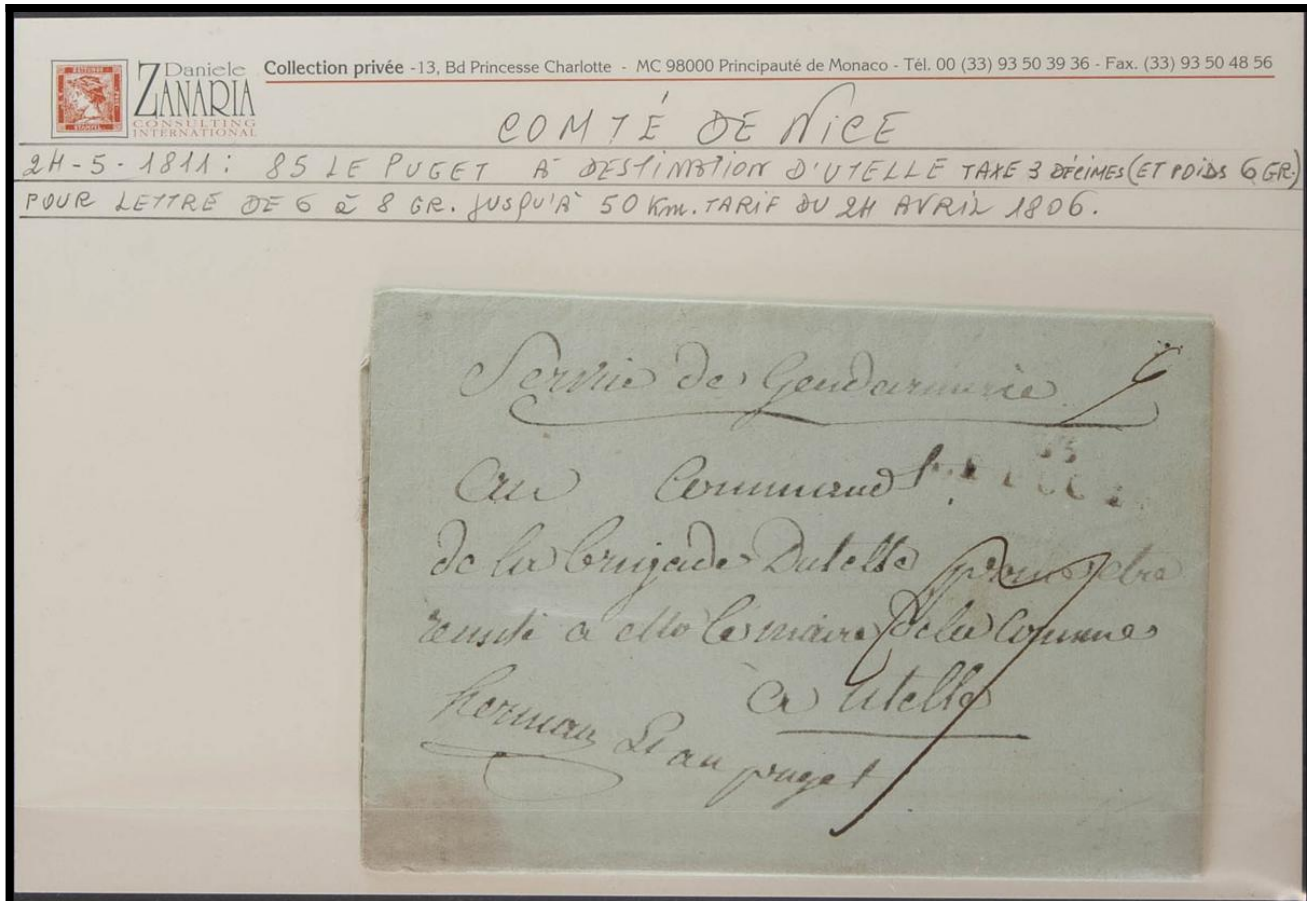 Daniele
ZANARIA
CONSULTING
INTERNATIONAL
Collection privée -13, Bd Princesse Charlotte - MC 98000 Principauté de Monaco - Tél. 00 (33) 93 50 39 36 - Fax. (33) 93 50 48 56
COMTÉ DE NICE
24-5-1811: 85 LE PUGET A DESTINATION D'UTELLE TAXE 3 DÉCIMES (ET POIDS 6 GR.)
POUR LETTRE DE 6 à 8 GR. JUSQU'À 50 Km. TARIF DU 24 AVRIL 1806.
Service de Gendarmerie 6
Au Commandt
de la brigade Dutelle pour etre
remise a Mr le maire de la Comune
a Utelle
herman Lt au puget